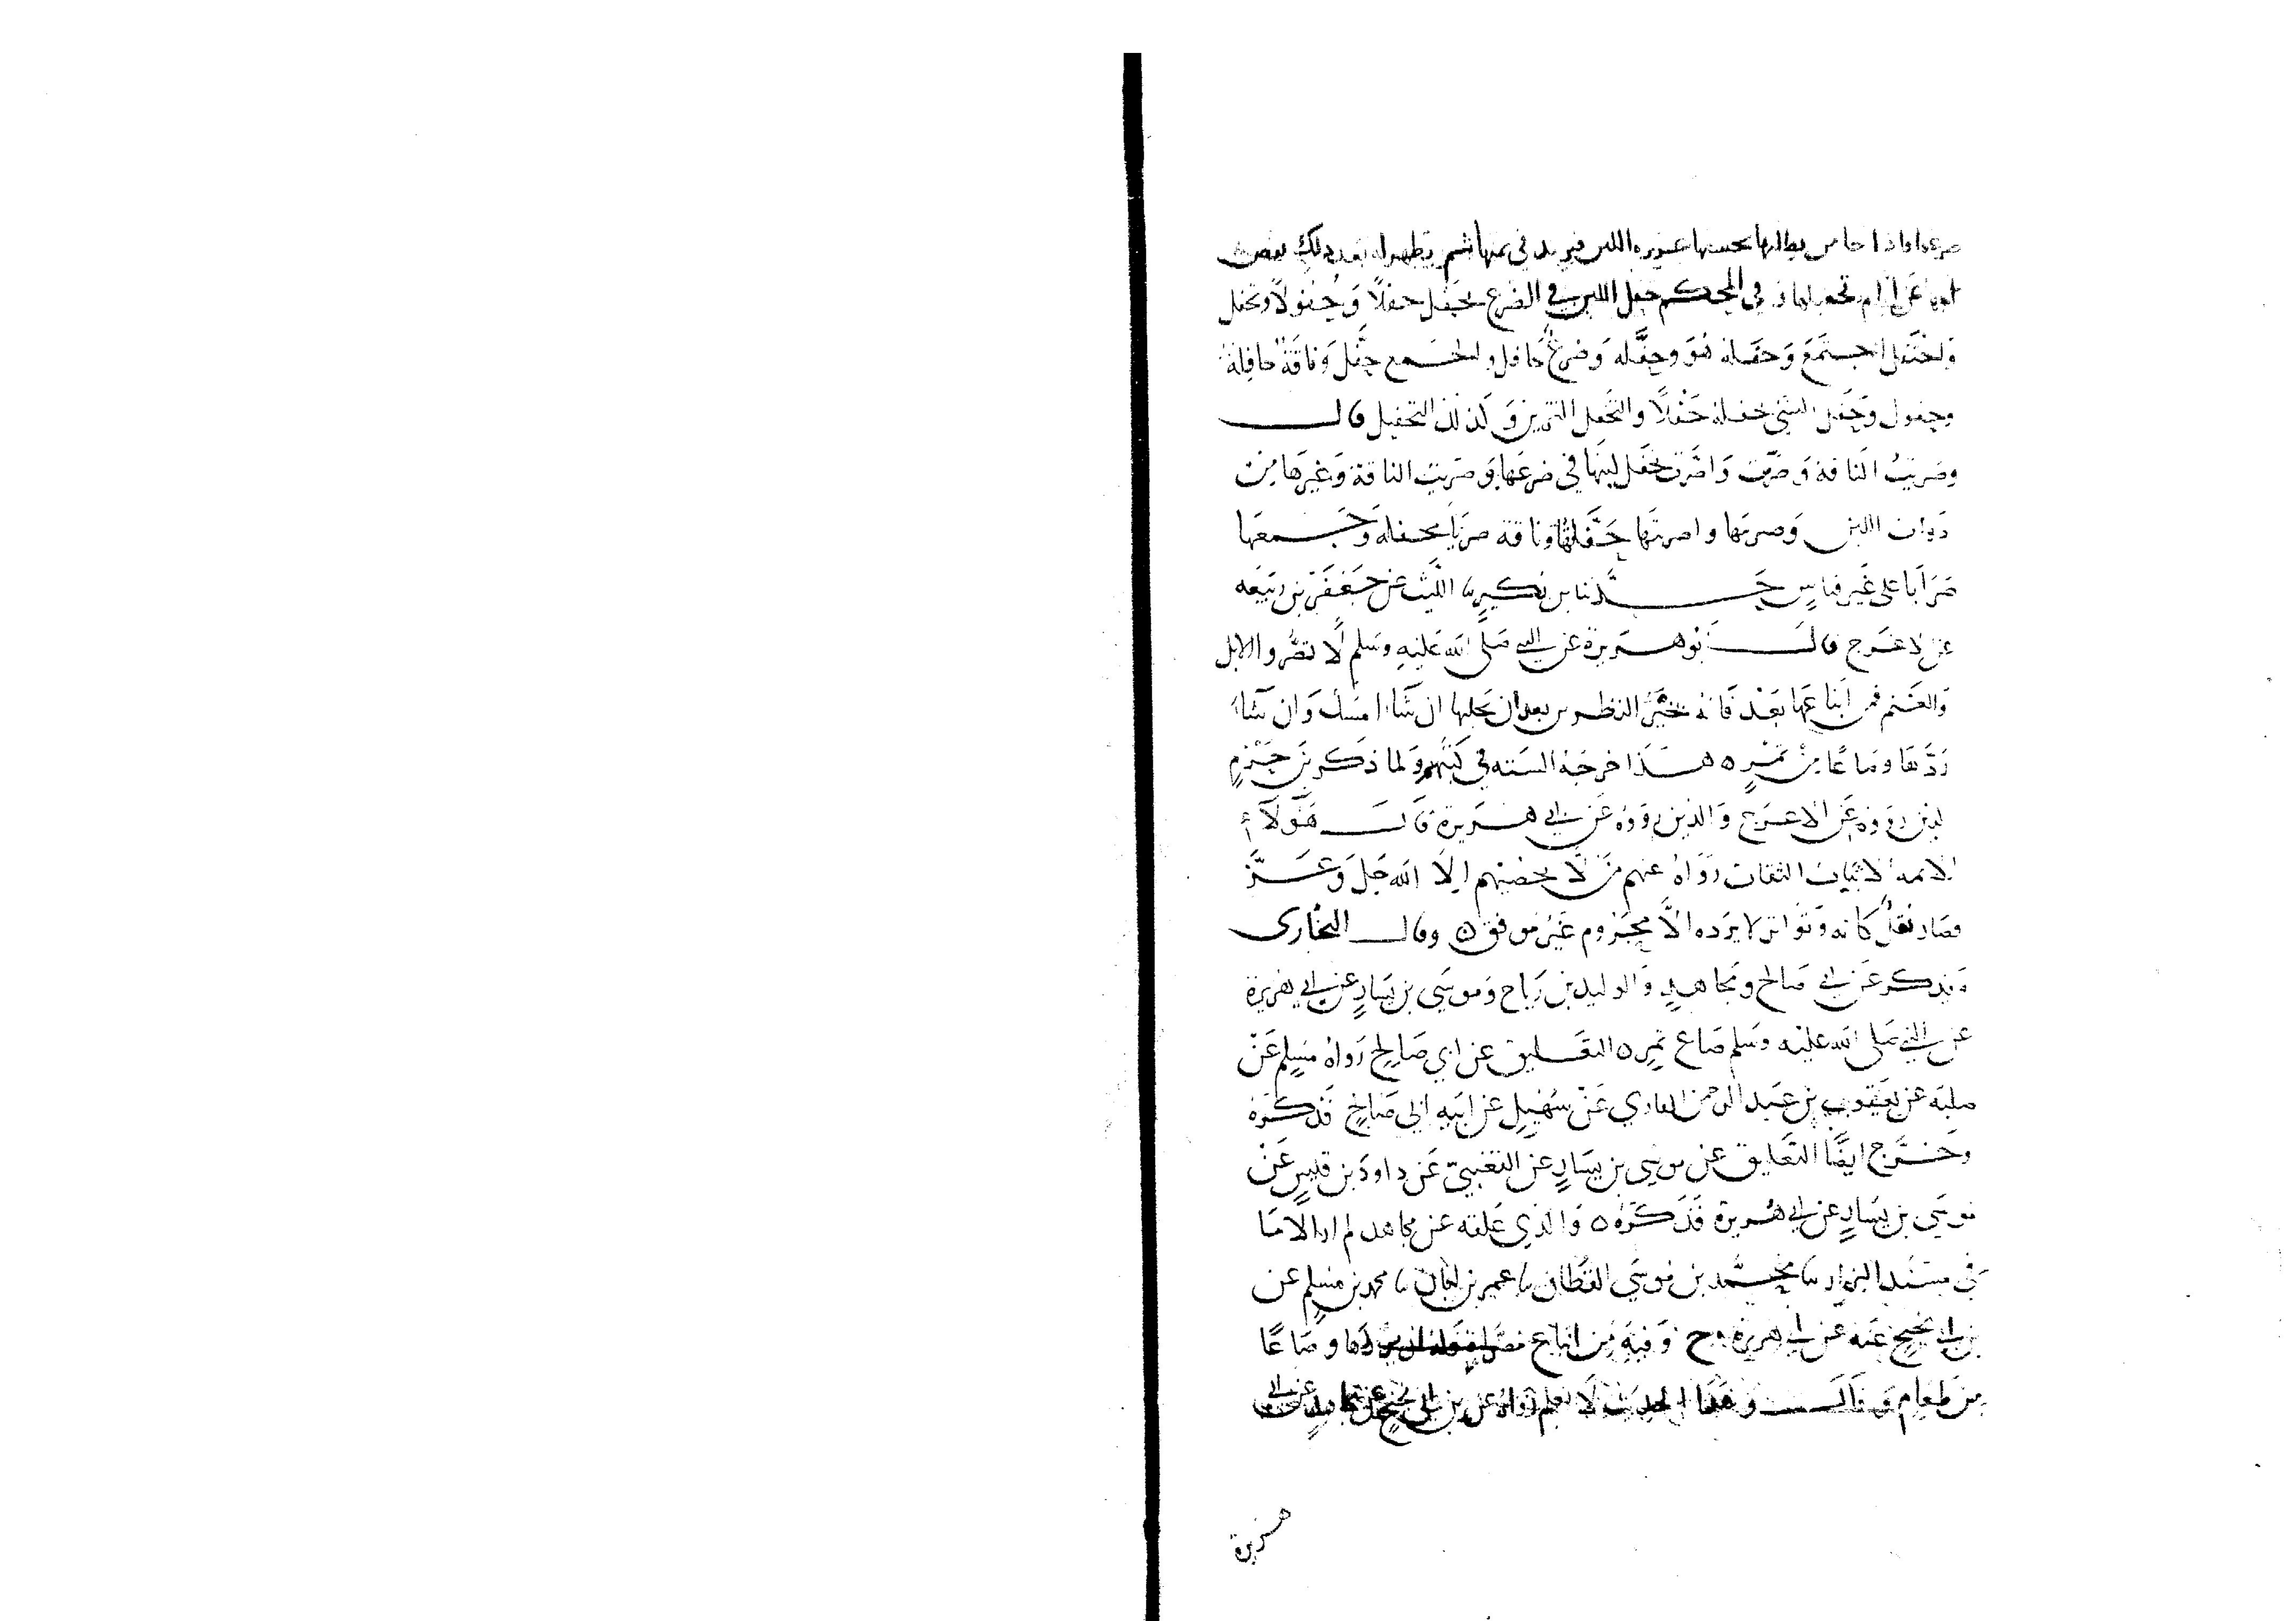 ضرعها فاذا جا من يطلبها يحسبها غزيره اللبن فيزيد في ثمنها ثم يظهر له بعد ذلك نقص
لبنها عن ايام تحفيلها وفي المحكم حفل اللبن في الضرع يحفل حفلًا وَحُفولًا وتحفل
وَاحتفل اجتمَعَ وَحفله هوَ وحفَّله وَضرعٌ حَافل والجمع حفَّل وَناقَةٌ حافلة
وحفول وَحَفل الشي حفله حَفْلًا والتحفل التزين وَكذلك التحفيل قال
وصَريتُ الناقة وَصَرّت وَاصْرَت تحفل لبنها في ضرعهَا وَصريت الناقة وَغيرهَا من
ذوات اللبن وَصريتها واصريتهَا حَفَّلتُهَا وناقة صَريَا محفلة وَجَمعها
صَرَايَا على غَير قياسٍ حَدثنا بن بكيرٍ ثنا الليث عن جَعْفَر بْن رَبيعَه
عن الاعرَج قال ابوهريرة عن النبي صَلى الله عَليْهِ وسَلم لَا تصُرُّوا الابل
وَالغَنم فمن ابتاعهَا بَعْد فَانه بخَيْر النظرين بعد ان يحلبها ان شَا امسَك وَان شَآءَ
رَدَّهَا وصَاعًا مِنْ تمْرٍ ٥ هَذا خرجَهُ الستة في كتبهم وَلما ذكر بْن حَزْمٍ
الذين روَوهُ عَن الاعرَج وَالذين روَوهُ عَن ابي هريرة قال هَؤلَآءِ
الائمة الاثبات الثقات رَوَاهُ عنهم مَن لَا يحصيْهم الَا الله جَل وَعَزَّ
فصَار نقل كافه وَتواتر لا يرَده الَّا محرُوم غَيْر موفق ٥ وقال البخاري
وَيذكر عَن ابي صَالح وَمجاهدٍ وَالوليد بن رَبَاح وَموسَى بن يسَارٍ عن ابي هريرة
عن النبي صَلى الله عليْه وسَلم صَاع تمرٍ ٥ التعَليق عن ابي صَالحٍ رَواهُ مسْلِم عَنْ
قتيبَة عن يعقوب بن عَبد الرحمن القاري عَنْ سُهَيلٍ عن ابَيهِ ابي صَالحٍ فَذكرَه
وَخرَّج ايضًا التعَليق عن موسى بن يسَارٍ عن القعْنبيّ عَن داودَ بن قيسٍ عَنْ
موسَى بن يسَارٍ عن ابي هُريرة فَذكرَهُ ٥ وَالذي عَلقه عن مجاهد لم اره الا مَا
في مسنَد البزار ثنا محمَّد بن موسَى القطان ثنا عمر بن ابان ثنا محمد بن مسْلمٍ عن
بن ابي نجيحٍ عَنه عن ابي هريرة وَفيهِ من ابتاع مصَراة فله ان يردهَا وصَاعًا
من طَعامٍ وَقَال وَهَذا الحديث لا نعلم رَوَاهُ عن بن ابي نجيحٍ عن مجاهدٍ عن ابي
هريرة